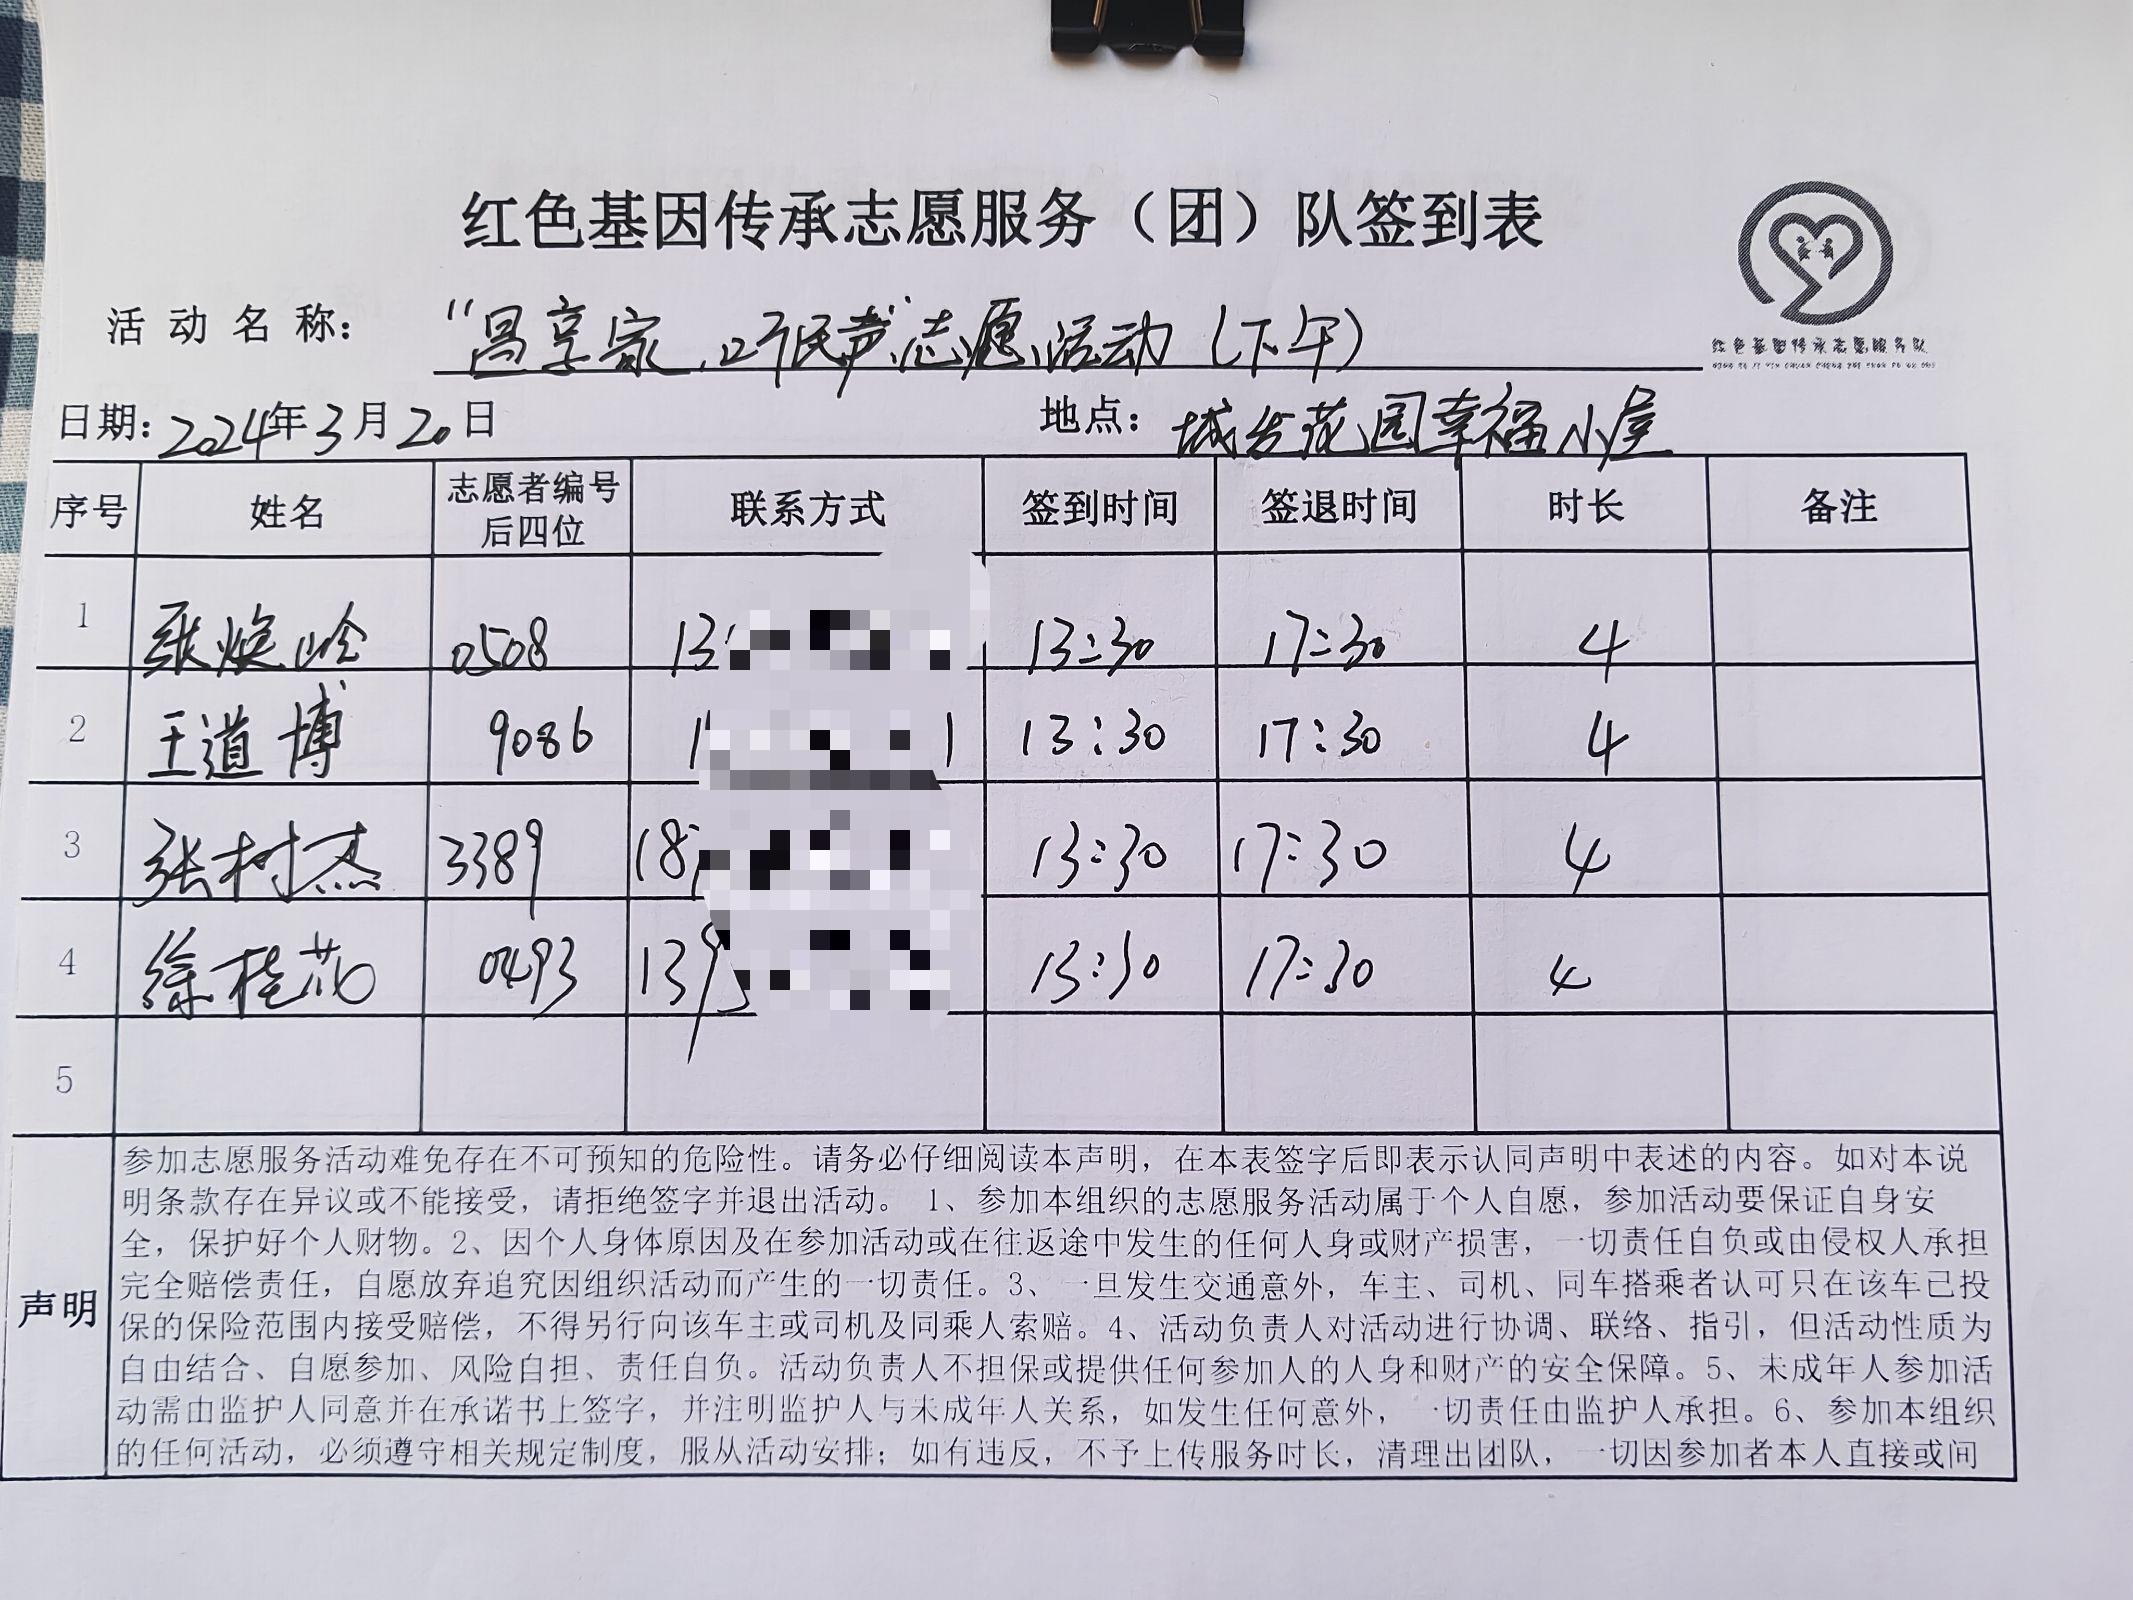 红色基因传承志愿服务（团）队签到表
红色基因传承志愿服务队
活动名称：“昌享家，听民声”志愿活动（下午）
日期：2024年3月20日 地点：城发花园幸福小屋
序号 姓名 志愿者编号后四位 联系方式 签到时间 签退时间 时长 备注
1 张焕玲 0508 13 13:30 17:30 4
2 王道博 9086 1 1 13:30 17:30 4
3 张树杰 3389 18 13:30 17:30 4
4 徐桂花 0493 139 13:30 17:30 4
5
声明
参加志愿服务活动难免存在不可预知的危险性。请务必仔细阅读本声明，在本表签字后即表示认同声明中表述的内容。如对本说
明条款存在异议或不能接受，请拒绝签字并退出活动。 1、参加本组织的志愿服务活动属于个人自愿，参加活动要保证自身安
全，保护好个人财物。2、因个人身体原因及在参加活动或在往返途中发生的任何人身或财产损害，一切责任自负或由侵权人承担
完全赔偿责任，自愿放弃追究因组织活动而产生的一切责任。3、一旦发生交通意外，车主、司机、同车搭乘者认可只在该车已投
保的保险范围内接受赔偿，不得另行向该车主或司机及同乘人索赔。4、活动负责人对活动进行协调、联络、指引，但活动性质为
自由结合、自愿参加、风险自担、责任自负。活动负责人不担保或提供任何参加人的人身和财产的安全保障。5、未成年人参加活
动需由监护人同意并在承诺书上签字，并注明监护人与未成年人关系，如发生任何意外，一切责任由监护人承担。6、参加本组织
的任何活动，必须遵守相关规定制度，服从活动安排；如有违反，不予上传服务时长，清理出团队，一切因参加者本人直接或间